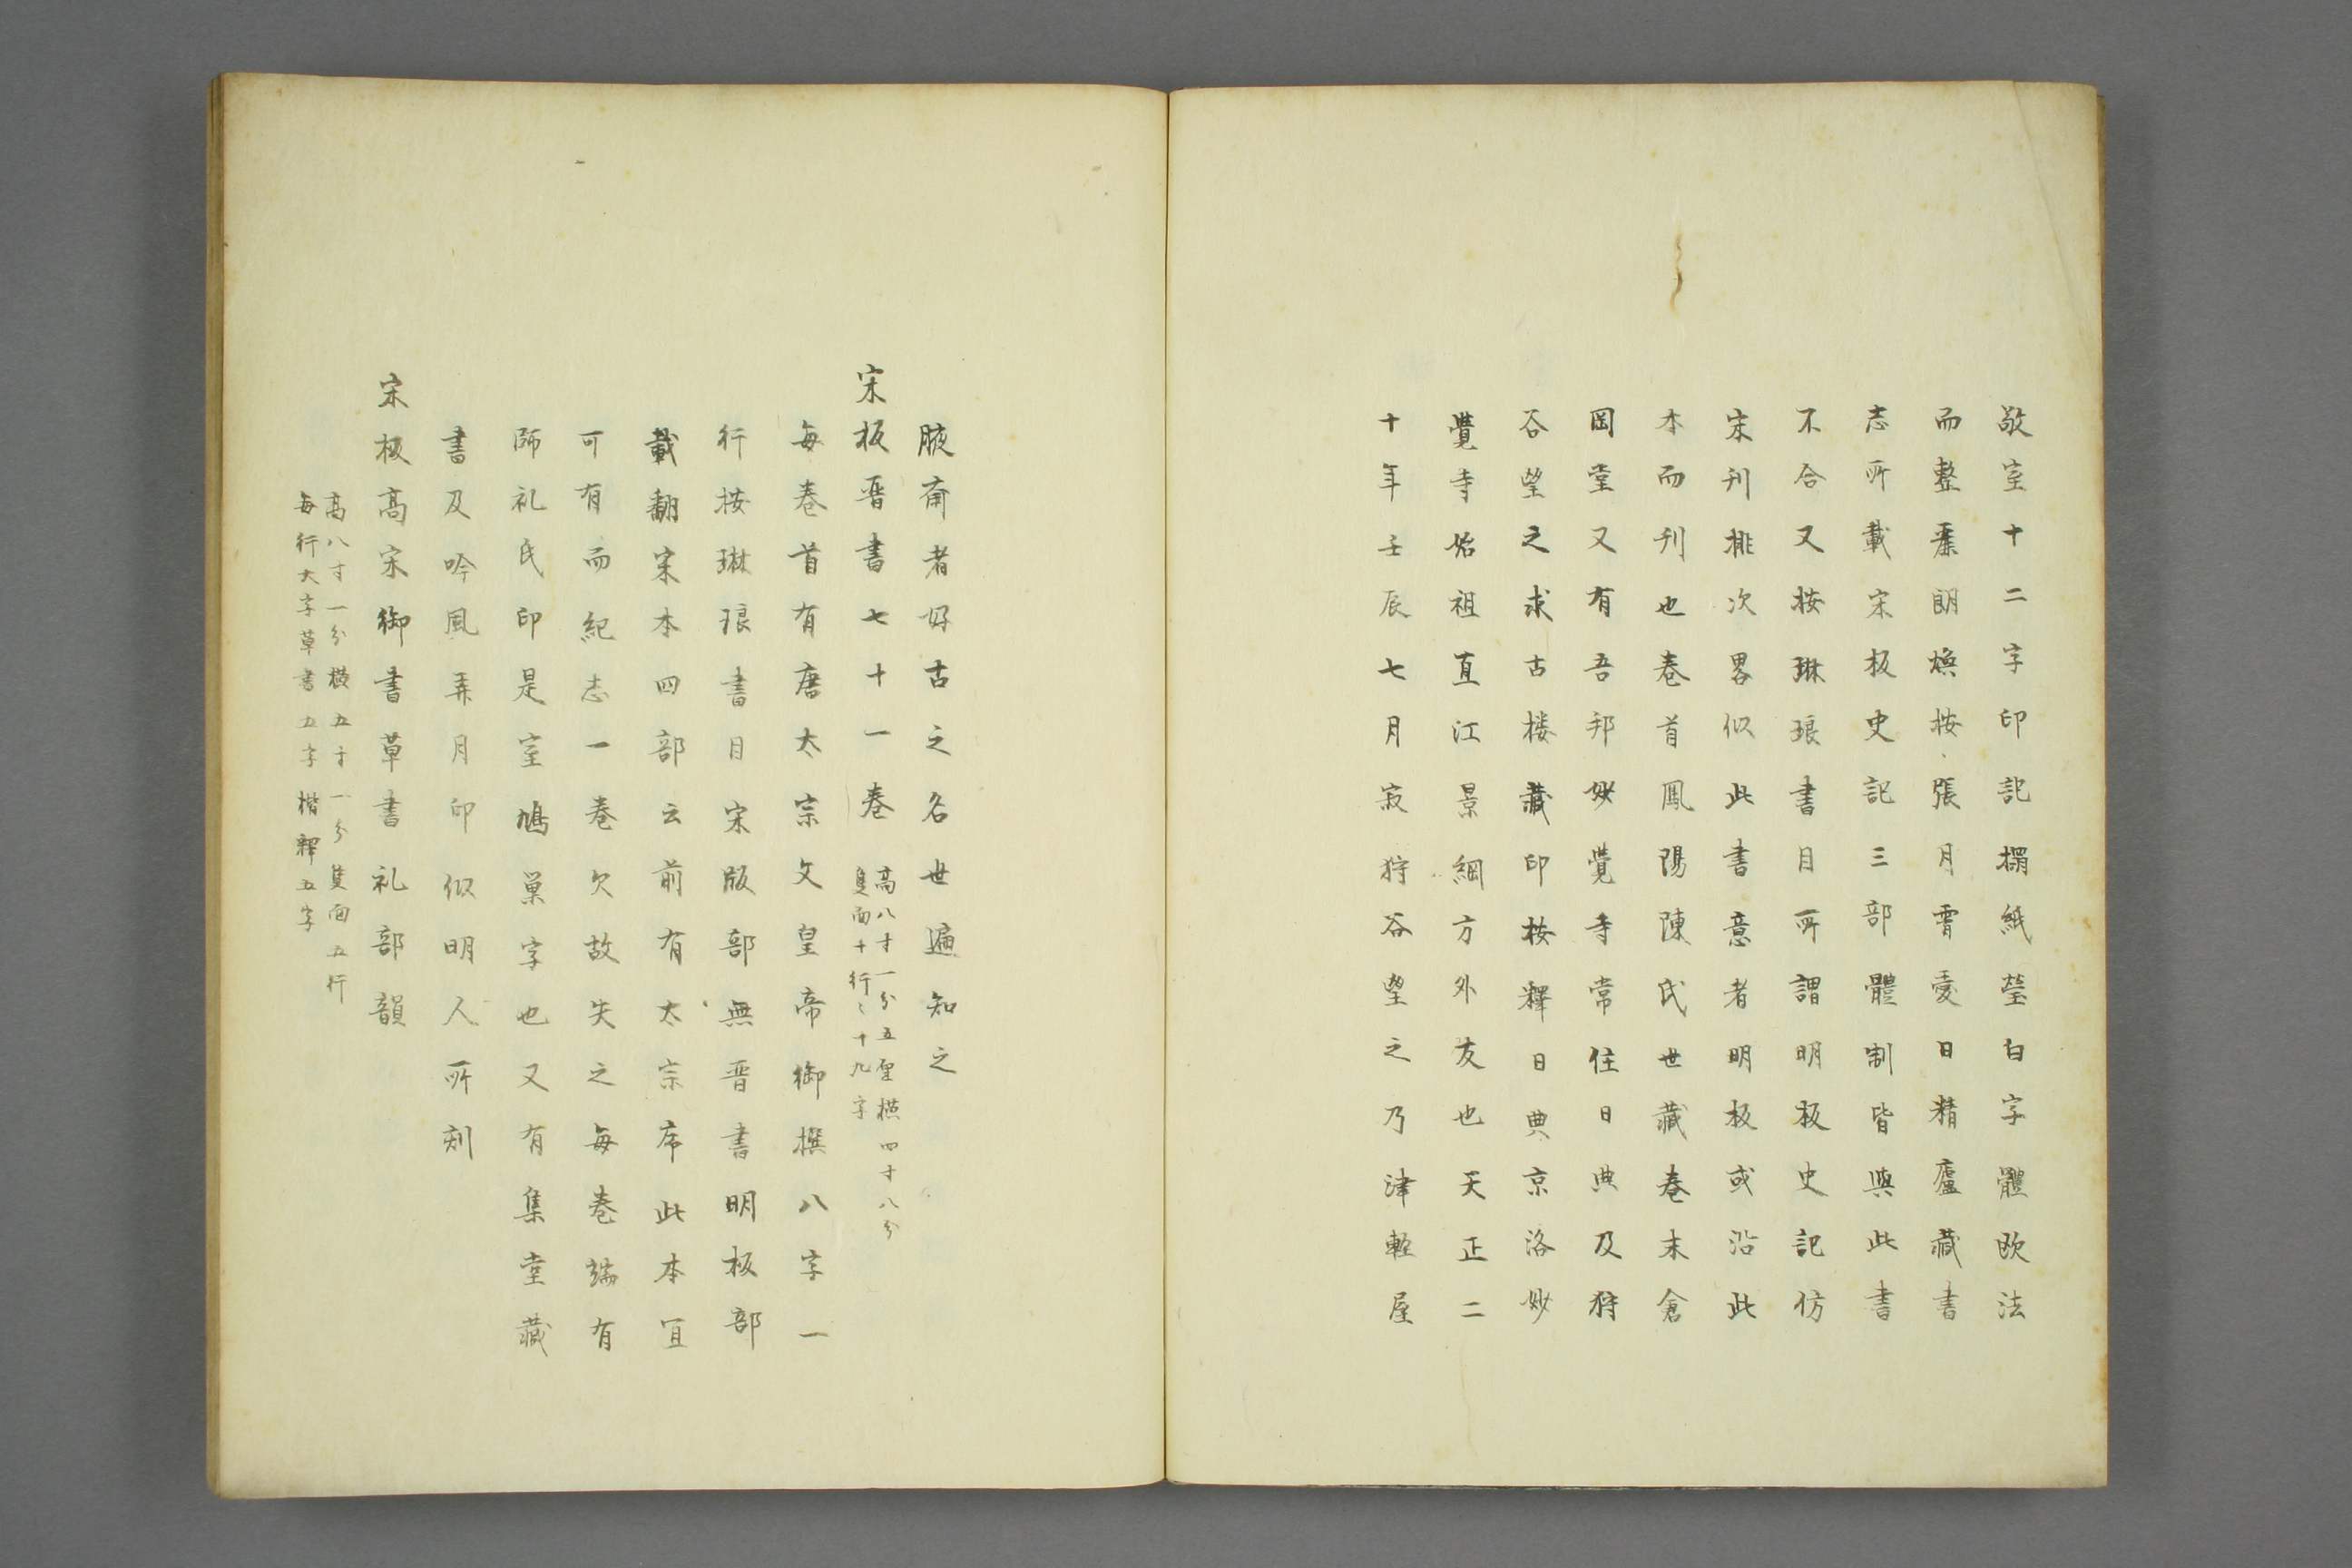 敬室十二字印記搨紙瑩白字體欧法
而整棗朗煥按張月霄愛日精廬藏書
志所載宋板史記三部體制皆與此書
不合又按琳琅書目所謂明板史記仿
宋刊排次畧似此書意者明板或沿此
本而刊也卷首鳳陽陳氏世藏卷末倉
岡堂又有吾邦妙覺寺常住日典及狩
谷望之求古楼藏印按釋日典京洛妙
覺寺始祖直江景綱方外友也天正二
十年壬辰七月寂狩谷望之乃津軽屋
腋斎者好古之名世遍知之
宋板晋書七十一卷
高八寸一分五厘横四寸八分
隻面十行〻十九字
每卷首有唐太宗文皇帝御撰八字一
行按琳琅書目宋版部無晋書明板部
載翻宋本四部云前有太宗序此本宜
可有而紀志一卷欠故失之每卷端有
師礼氏印是室鳩巣字也又有集堂藏
書及吟風弄月印似明人所刻
宋板高宋御書草書礼部韻
高八寸一分横五寸一分隻面五行
每行大字草書五字楷釋五字